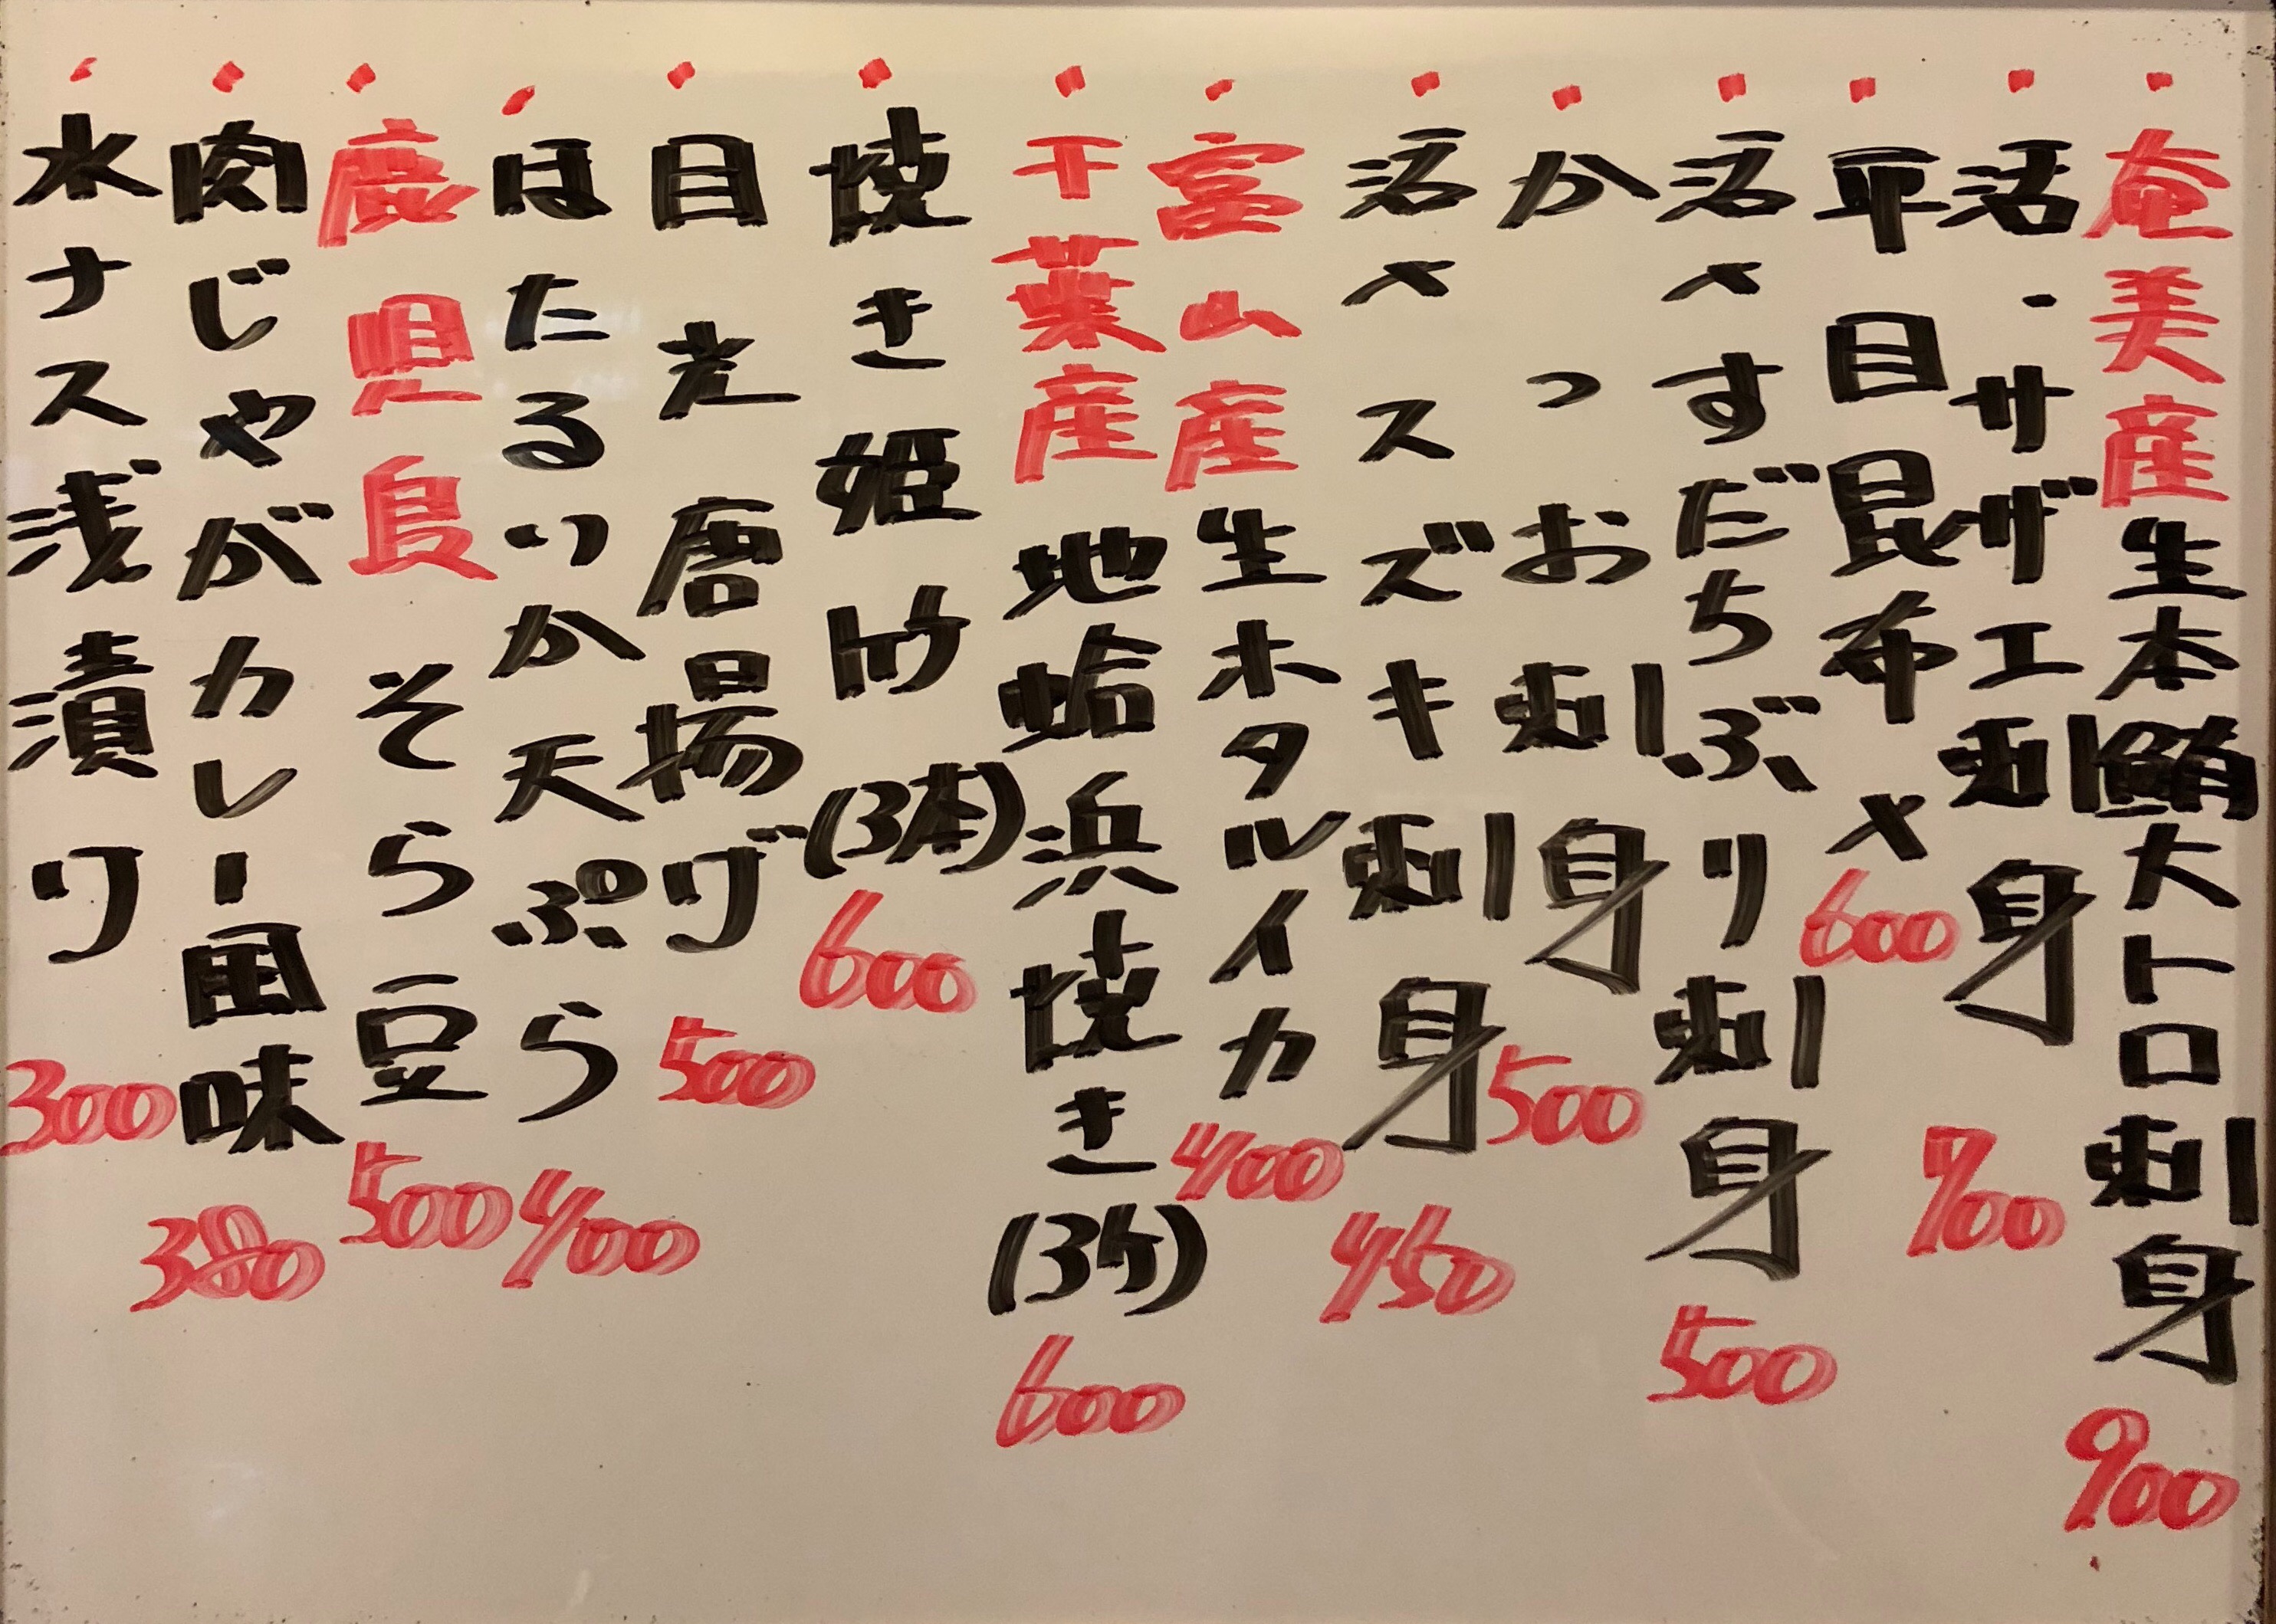 ・奄美産生本鮪大トロ刺身 900
・活・サザエ刺身 700
・平目昆布〆 600
・活〆すだちぶり刺身 500
・かつお刺身 500
・活〆スズキ刺身 450
・富山産生ホタルイカ 400
・千葉産地蛤浜焼き(3ケ) 600
・焼き姫竹(3本) 600
・目光唐揚げ 500
・ほたるいか天ぷら 400
・鹿児島そら豆 500
・肉じゃがカレー風味 380
・水ナス浅漬け 300